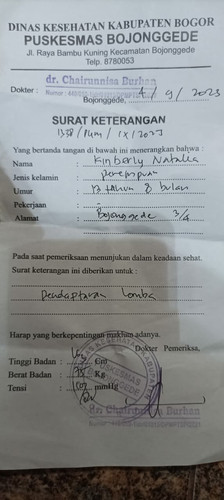 DINAS KESEHATAN KABUPATEN BOGOR
PUSKESMAS BOJONGGEDE
Jl. Raya Bambu Kuning Kecamatan Bojonggede
Telp. 8780053
dr. Chairunnisa Burhan
Dokter :
Bojonggede, 4 / 9 / 2023
SURAT KETERANGAN
Yang bertanda tangan di bawah ini menerangkan bahwa :
Nama : Kinberly Natalia
Jenis kelamin : perempuan
Umur : tahun 8 bulan
Pekerjaan :
Alamat : Bojonggede 3/4
Pada saat pemeriksaan menunjukan dalam keadaan sehat.
Surat keterangan ini diberikan untuk :
Pendaptaran Lomba
Harap yang berkepentingan maklum adanya.
Dokter Pemeriksa,
Tinggi Badan : Cm
Berat Badan : Kg
Tensi : mmHg
PUSKESMAS
BOJONGGEDE
dr. Chairunnisa Burhan